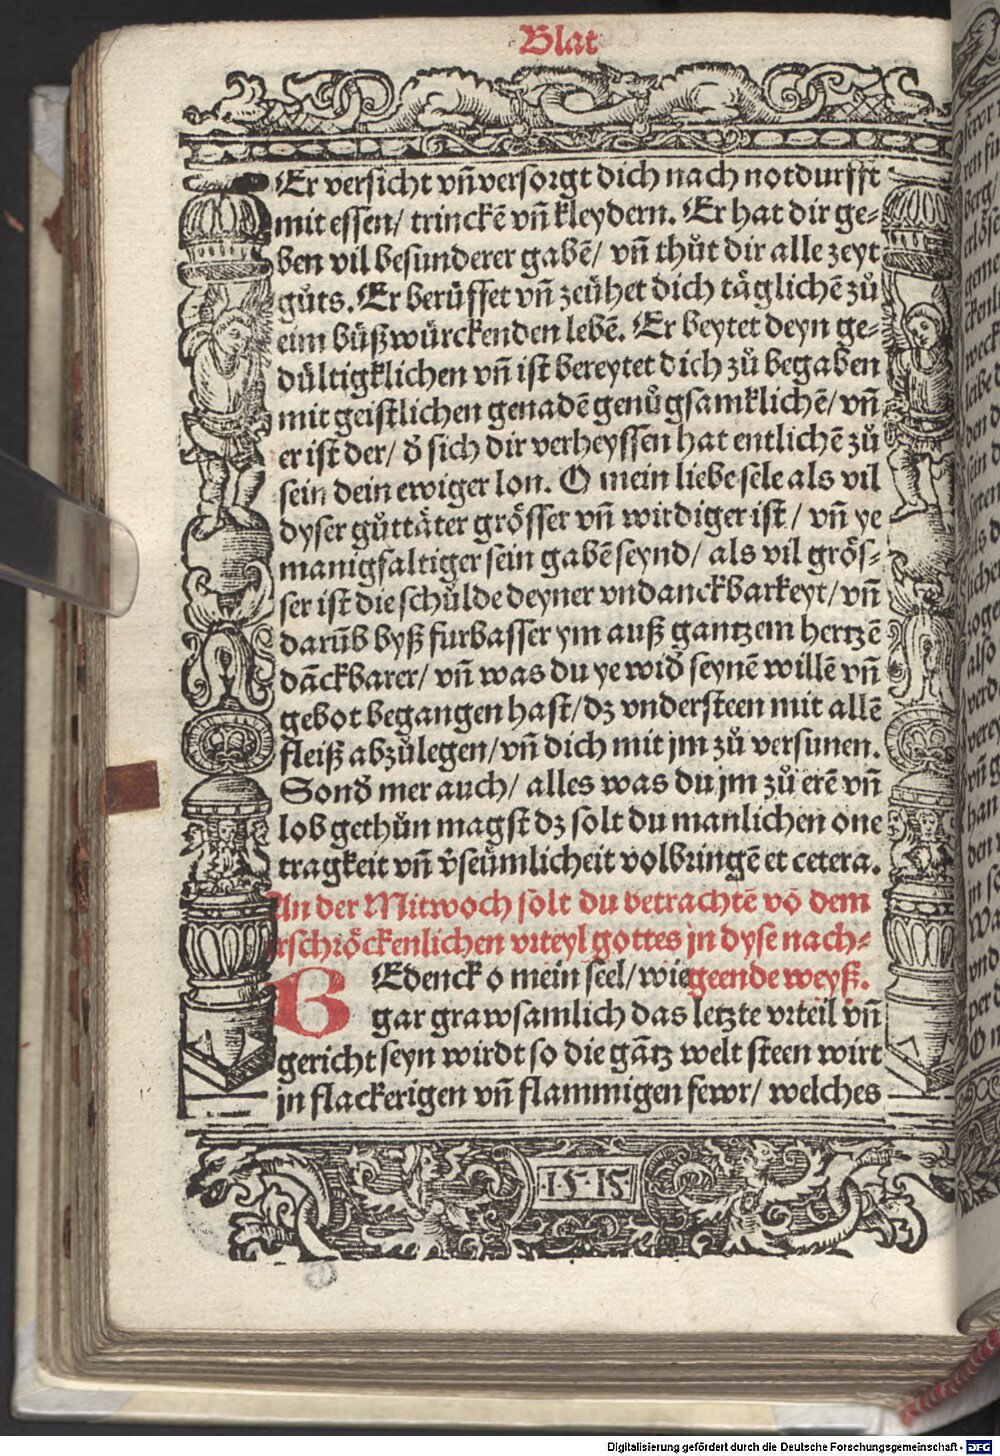 Blat
Er versicht vñ versorgt dich nach notdurfft
mit essen/ trinckē vñ kleydern. Er hat dir ge⸗
ben vil besunderer gabē/ vñ thůt dir alle zeyt
gůts. Er berüffet vñ zeühet dich täglichē zů
eim bůßwürckenden lebē. Er beytet deyn ge⸗
dültigklichen vñ ist bereytet dich zů begaben
mit geistlichen genadē genůgsamklichē/ vñ
er ist der/ ð sich dir verheyssen hat entlichē zů
sein dein ewiger lon. O mein liebe sele als vil
dyser gůttäter grösser vñ wirdiger ist/ vñ ye
manigfaltiger sein gabē seynd/ als vil grös⸗
ser ist die schulde deyner vndanckbarkeyt/ vñ
darūb byß furbasser ym auß gantzem hertzē
dāckbarer/ vñ was du ye wið seynē willē vñ
gebot begangen hast/ dz vndersteen mit allē
fleiß abzůlegen/ vñ dich mit jm zů versunen.
Sonð mer auch/ alles was du jm zů erē vñ
lob gethůn magst dz solt du manlichen one
tragkeit vñ v̓seümlicheit volbringē et cetera.
An der Mitwoch solt du betrachtē vō dem
rschröckenlichen vrteyl gottes jn dyse nach⸗
BEdenck o mein seel/ wie geende weyß.
gar grawsamlich das letzte vrteil vñ
gericht seyn wirdt so die gātz welt steen wirt
jn flackerigen vñ flammigen fewr/ welches
·15·15·
Digitalisierung gefördert durch die Deutsche Forschungsgemeinschaft - DFG